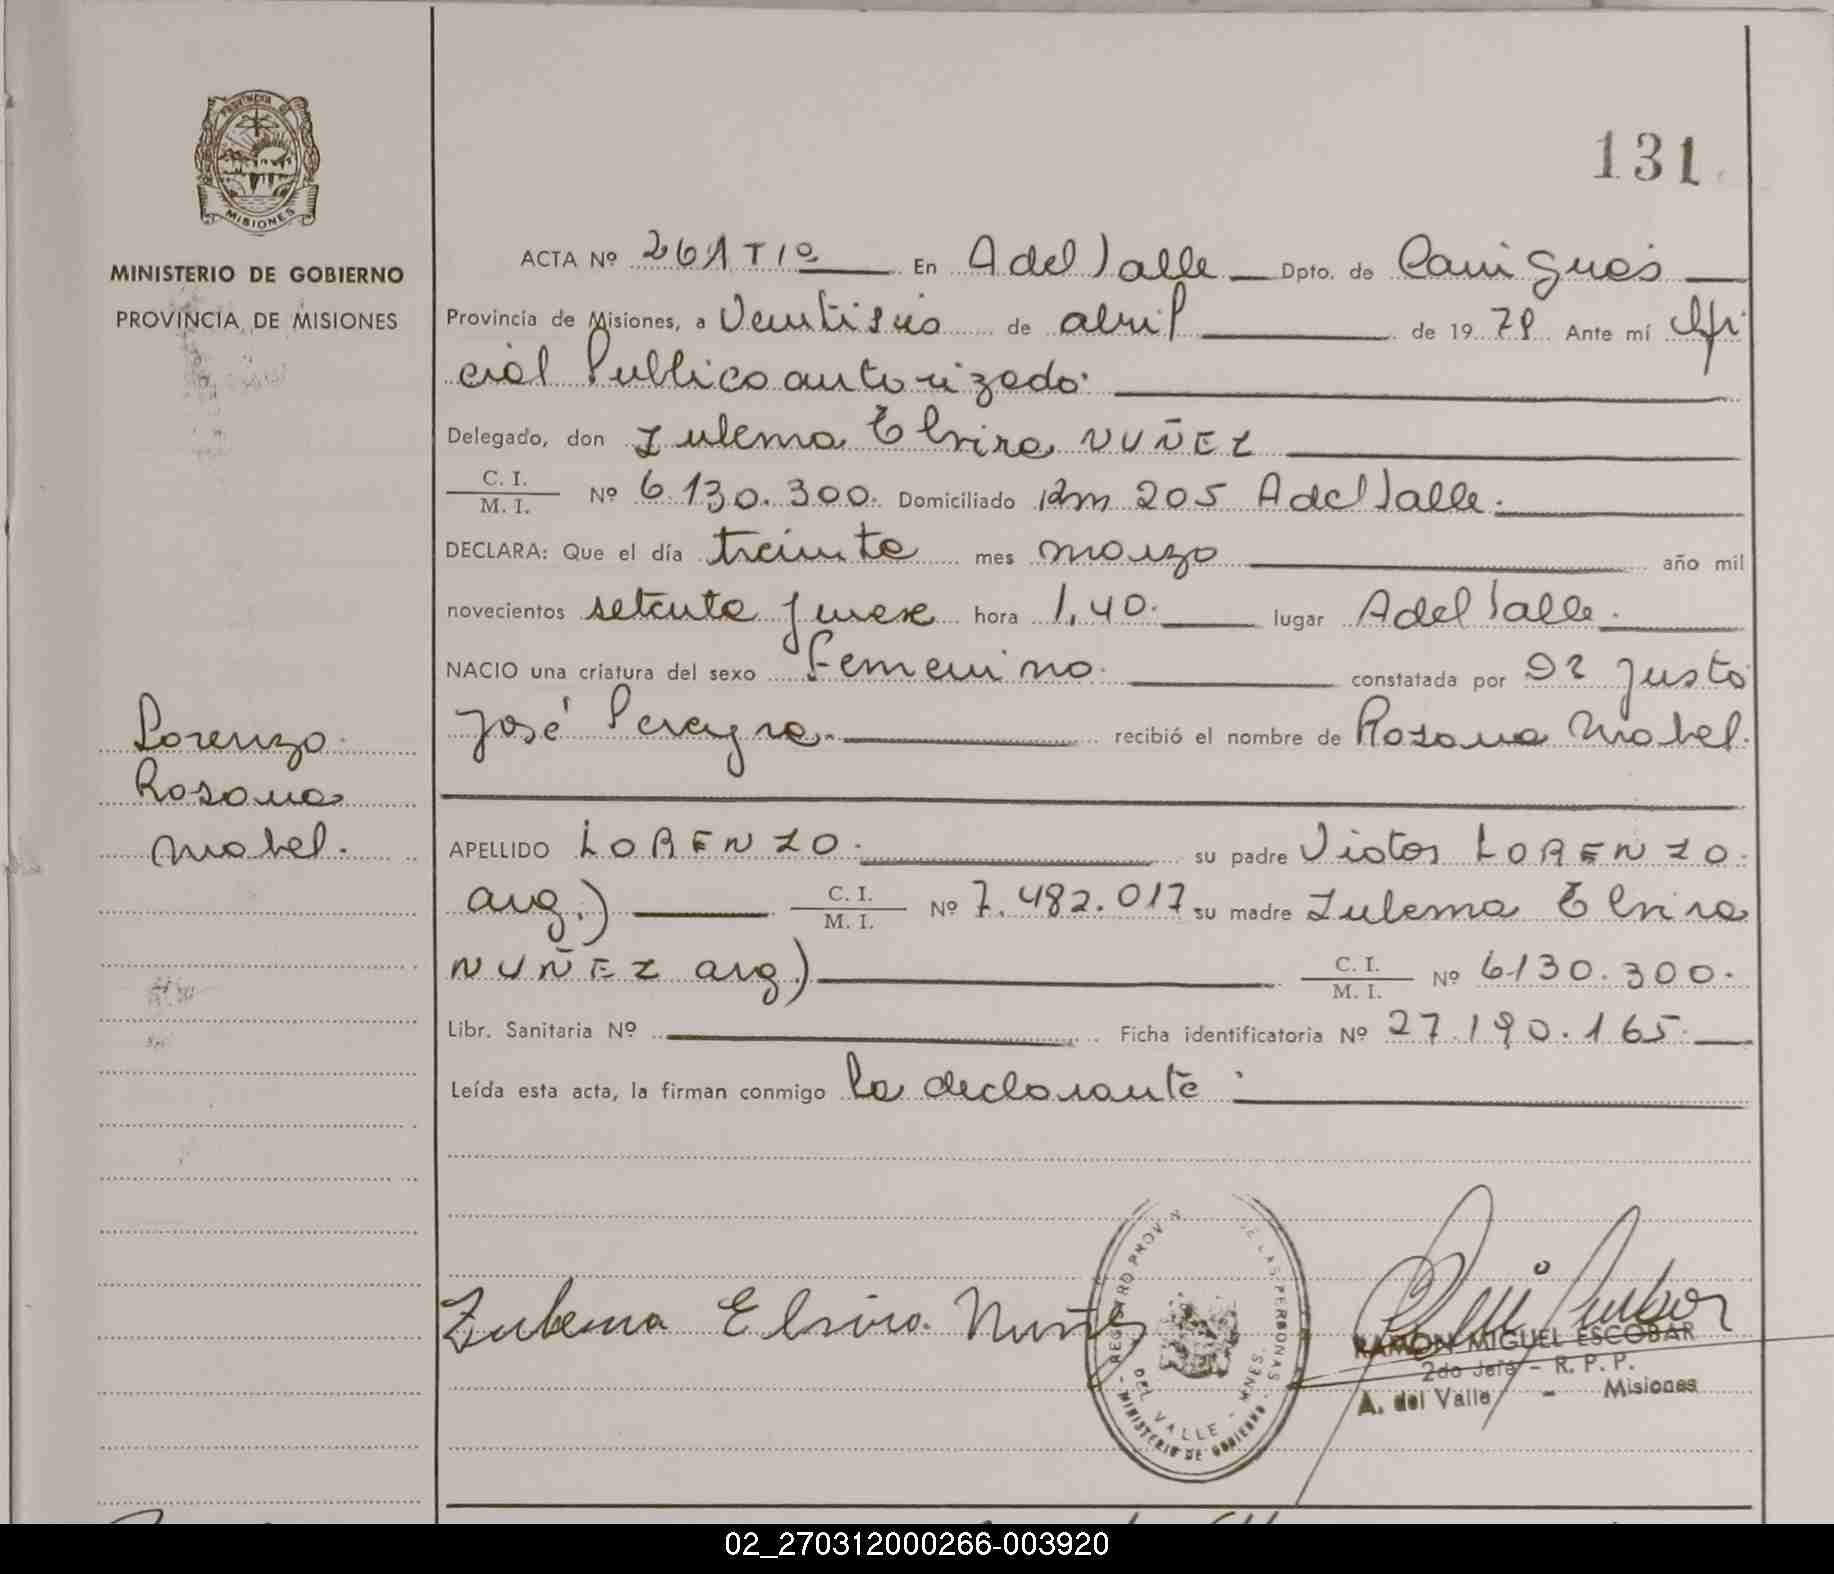 PROVINCIA DE
MISIONES
MINISTERIO DE GOBIERNO
PROVINCIA DE MISIONES
131
ACTA Nº 261 Tº 1º En A del Valle Dpto. de Cainguás
Provincia de Misiones, a Veintiseis de abril de 1979 Ante mí Ofi
cial Publico autorizado.
Delegado, don Zulema Elvira NUÑEZ
C. I.
M. I. Nº 6.130.300. Domiciliado Km 205 A del Valle.
DECLARA: Que el día treinta mes marzo año mil
novecientos setenta y nueve hora 1,40. lugar A del Valle.
NACIO una criatura del sexo femenino. constatada por Dr Justo
José Pereyra. recibió el nombre de Rosana Mabel.
Lorenzo
Rosana
Mabel.
APELLIDO LORENZO. su padre Victor LORENZO.
arg.) C. I.
M. I. Nº 7.482.017 su madre Zulema Elvira
NUÑEZ arg.) C. I.
M. I. Nº 6130.300.
Libr. Sanitaria Nº Ficha identificatoria Nº 27.190.165.
Leída esta acta, la firman conmigo la declarante.
Zulema Elvira Nuñez
REGISTRO PROV DE LAS PERSONAS
DEL VALLE - MNES.
- MINISTERIO DE GOBIERNO -
RAMON MIGUEL ESCOBAR
2do Jefe - R. P. P.
A. del Valle - Misiones
02_270312000266-003920